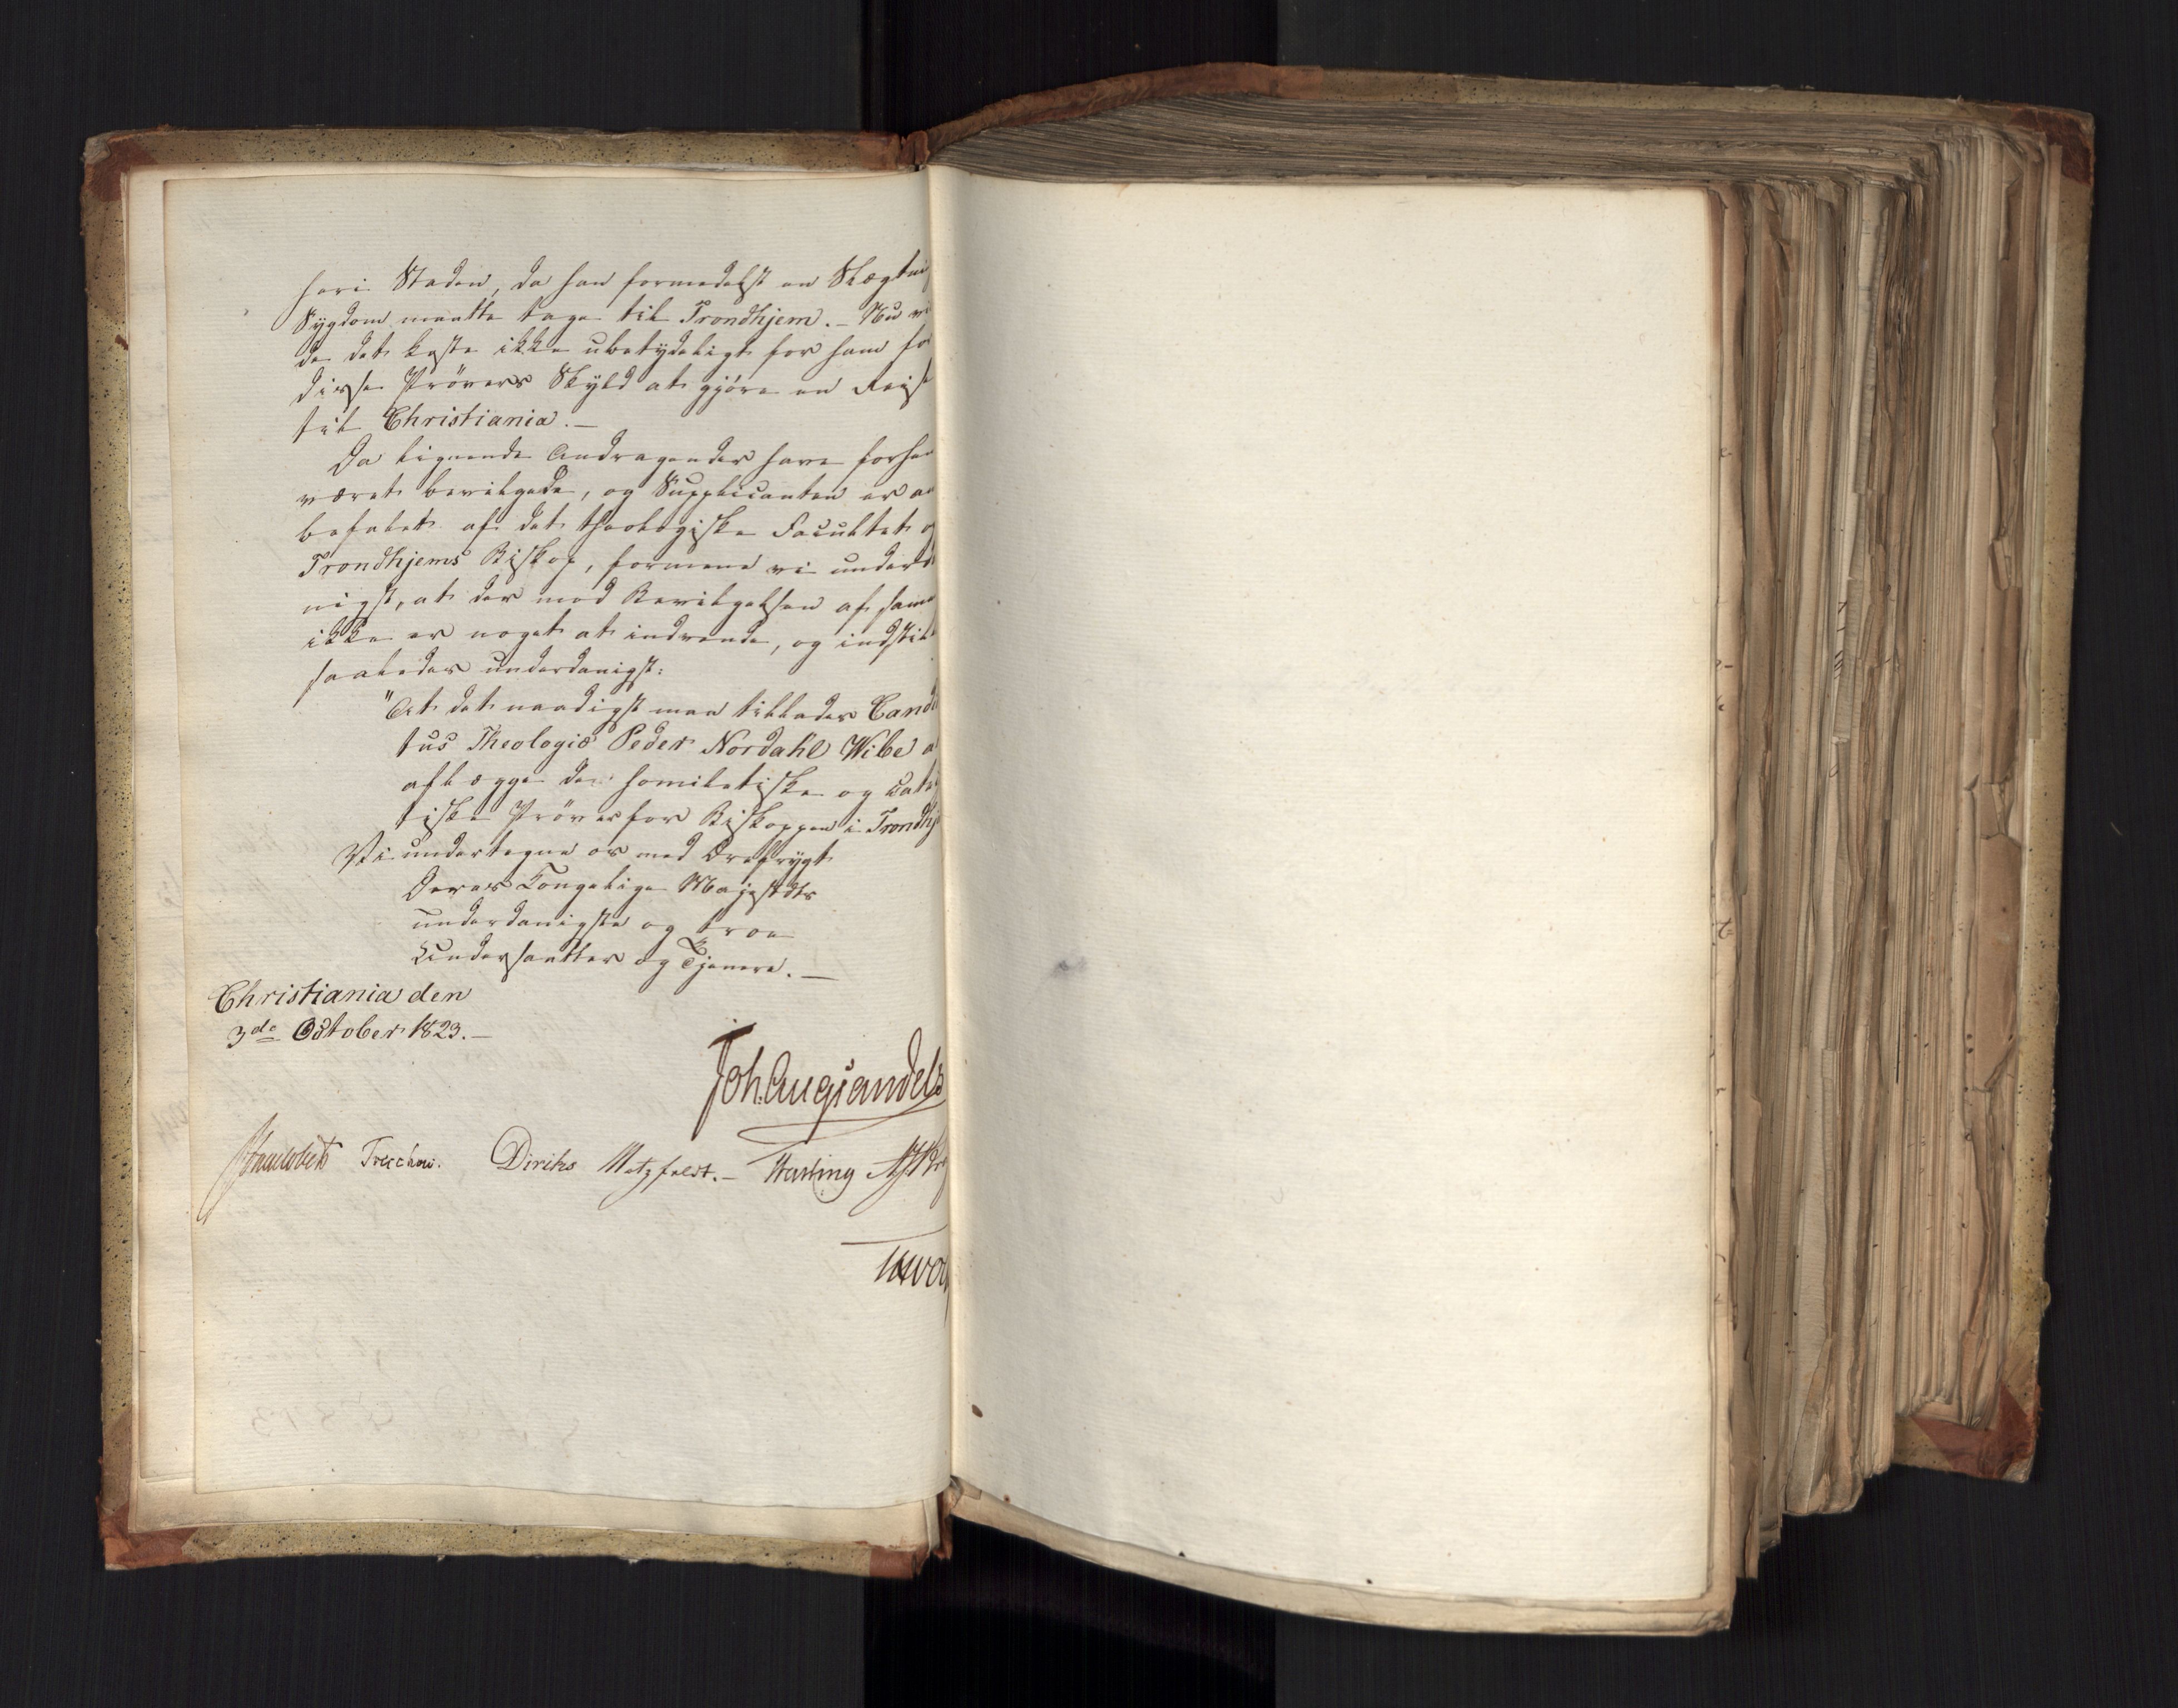 heri Staden, da han formedelst en Slægtni
Sygdom maatte tage til Trondhjem. – Nu vi
de det koste ikke ubetydeligt for ham for
disse Prövers Skyld at gjöre en Reise
til Christiania. –
Da lignende Andragender have forhen
været bevilgede, og Supplicanten er an
befalet af det theologiske Facultet og
Trondhjems Biskop, formene vi underda
nigst, at der mod Bevilgelsen af samme
ikke er noget at indvende, og indstille
saaledes underdanigst:
"At det naadigst maa tillades Candi
tus Theologiæ Peder Nordahl Wibe a
aflægge de homiletiske og Cate
tiske Pröver for Biskoppen i Trondhj
Vi undertegne os med Ærefrygt
Deres Kongelige Majestæts
underdanigste og troe
Undersaatter og Tjenere. –
Christiania den
3de October 1823. –
Joh. Aug Sandels
Treschow. Diriks Motzfeldt. – Fasting